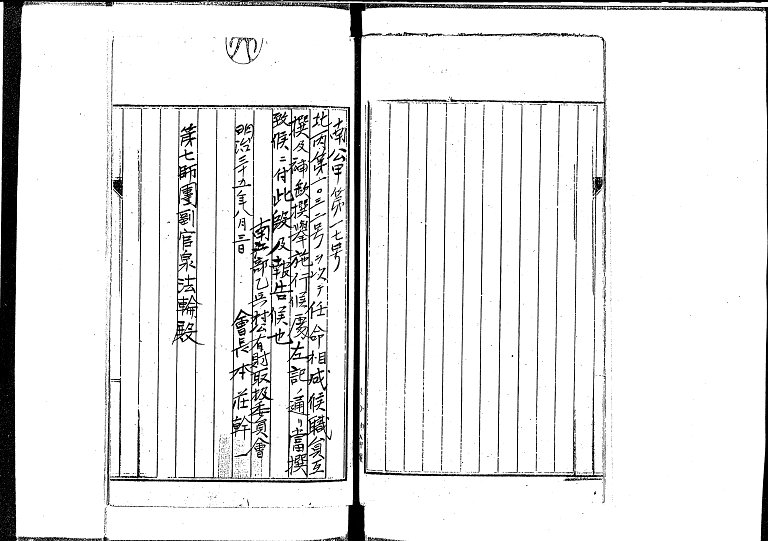 南公甲第一七号
北丙第一〇三二号ヲ以テ任命相成候職員互
撰及補欠撰挙施行候處左記ノ通リ当撰
致候ニ付此段及報告候也
南部乙兵村公有財取扱委員會
明治三十五年八月三日 會長本荘幹一
第七師團副官泉法輪殿